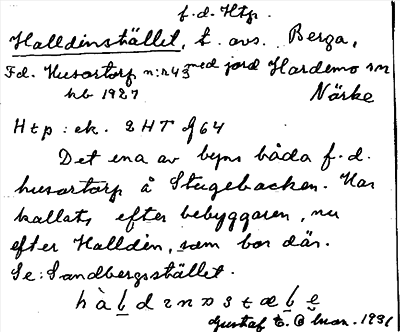 f.d. Htp.
Halldinstället, t. avs. Berga,
Fd. Husartorp n:r 43 med jord Hardemo sn
hb 1927 Närke
Htp: ek. 2 HT 64
Det ena av byns båda f.d.
husartorp å Stugebacken. Har
kallats efter bebyggaren, nu
efter Halldin, som bor där.
Se: Sandbergsstället.
Gustaf 1931